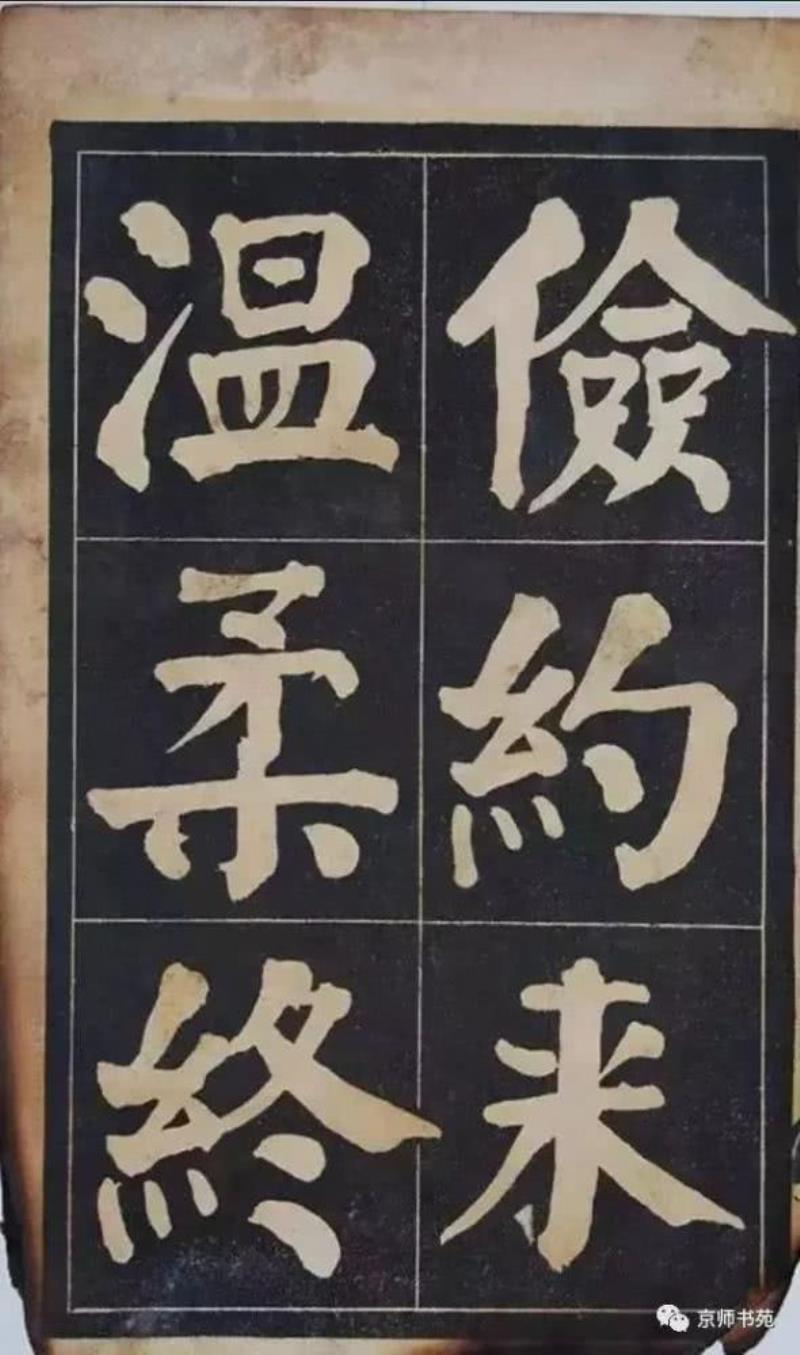 儉約来
温柔終
京师书苑